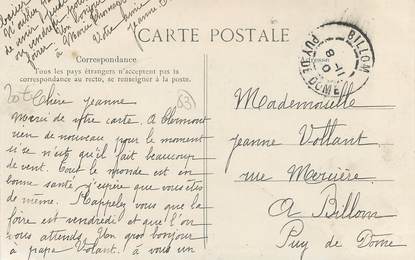 CARTE POSTALE
Correspondance
Tous les pays étrangers n'acceptent pas la
correspondance au recto, se renseigner à la poste.
Chère Jeanne
Merci de votre carte. A Clermont
rien de nouveau pour le moment
si ce n'est qu'il fait beaucoup
de vent. Tout le monde est en
bonne santé j'espère que vous êtes
de même. Rappelez vous que la
foire est vendredi et que l'on
vous attends. Mon bonjour
à papa Volant. à vous un
Mademoiselle
Jeanne Vollant
rue Mercière
A Billom
Puy de Dome
BILLOM
PUY-DE-DOME
63